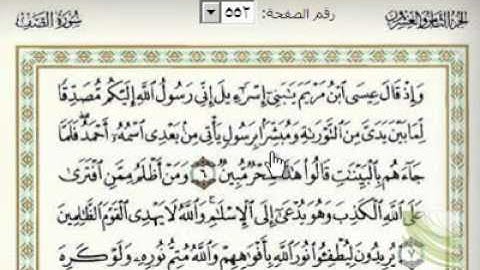 رقم الصفحة: ٥٥٢
سُورَةُ الصَّفِّ
الجزء الثامن والعشرون
وَإِذْ قَالَ عِيسَى ابْنُ مَرْيَمَ يَٰبَنِىٓ إِسْرَٰٓءِيلَ إِنِّى رَسُولُ اللَّهِ إِلَيْكُم مُّصَدِّقًا
لِّمَا بَيْنَ يَدَىَّ مِنَ التَّوْرَىٰةِ وَمُبَشِّرًۢا بِرَسُولٍ يَأْتِى مِنۢ بَعْدِى اسْمُهُۥٓ أَحْمَدُ ۖ فَلَمَّا
جَآءَهُم بِالْبَيِّنَٰتِ قَالُوا۟ هَٰذَا سِحْرٌ مُّبِينٌ ٦ وَمَنْ أَظْلَمُ مِمَّنِ افْتَرَىٰ
عَلَى اللَّهِ الْكَذِبَ وَهُوَ يُدْعَىٰٓ إِلَى الْإِسْلَٰمِ ۚ وَاللَّهُ لَا يَهْدِى الْقَوْمَ الظَّٰلِمِينَ
٧ يُرِيدُونَ لِيُطْفِـُٔوا۟ نُورَ اللَّهِ بِأَفْوَٰهِهِمْ وَاللَّهُ مُتِمُّ نُورِهِۦ وَلَوْ كَرِهَ